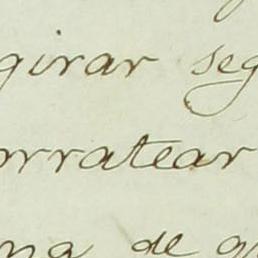 girar seg
rratear
na de qu